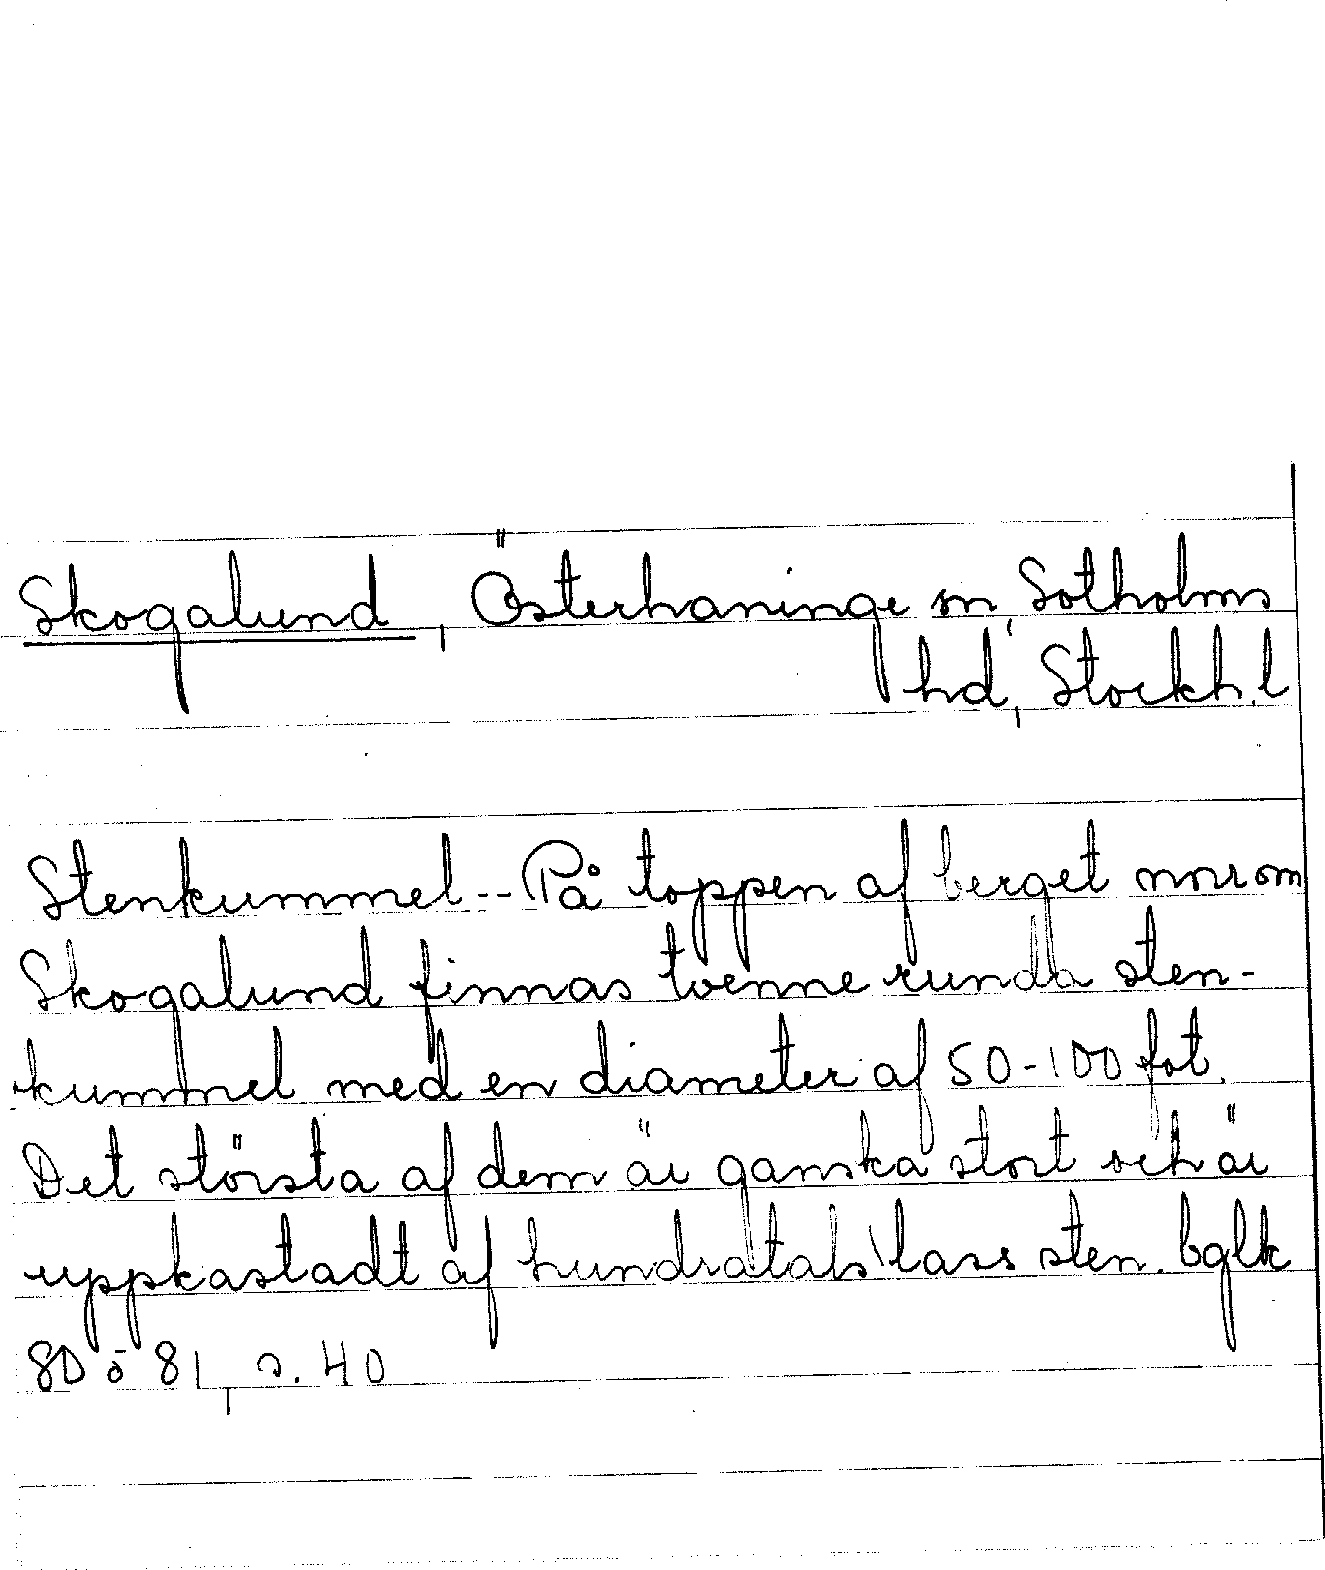 Skogalund, Österhaninge sn, Sotholms
hd, Stockh.l
Stenkummel -- På toppen af berget norrom
Skogalund finnas tvenne runda sten-
kummel med en diameter af 50-100 fot.
Det största af dem är ganska stort och är
uppkastadt af hundratals lass sten. bglk
80 o 81, s. 40